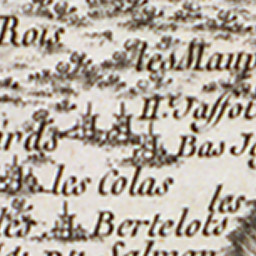 Rois
les Maup
H.t Jaffot
ards
Bas Ja
les Colas
les
les Bertelots
Salmon